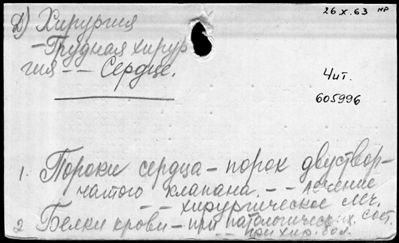 26.X.63 нр
Д) Хирургия
- Грудная хирур
гия - - Сердце.
Чит.
605996
1. Пороки сердца - порок двуствор-
чатого клапана. - - лечение
- - хирургическое см.
2 Белки крови - при патологических. сост.
- - при хир. бол.